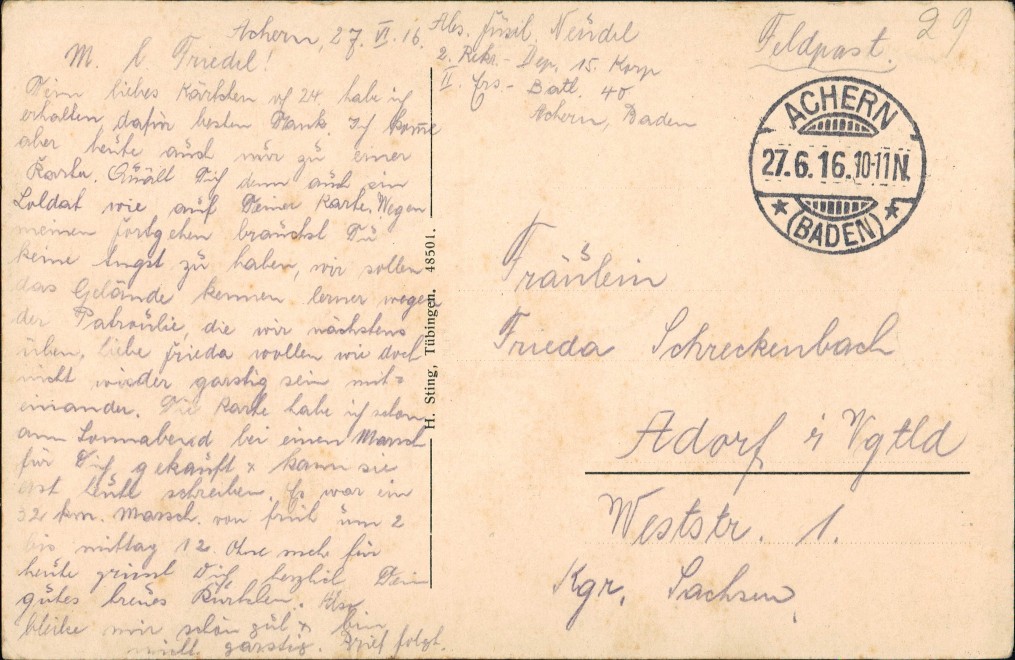 Achern, 27. VI. 16.
M. l. Friedel!
Dein liebes Kärtchen v. 24. habe ich
erhalten, dafür besten Dank. Ich komme
aber heute auch nur zu einer
Karte. Quält Dich denn auch ein
Soldat wie auf Deiner Karte. Wegen
meinen fortgehen brauchst Du
keine Angst zu haben, wir sollen
das Gelände kennen lernen wegen
der Patroulie, die wir nächstens
üben. Liebe Frieda wollen wie doch
nicht wieder garstig sein mit=
einander. Die Karte habe ich schon
am Sonnabend bei einen Marsch
für Dich gekauft & kann sie
erst heute schreiben. Es war ein
32 km. Marsch. von früh um 2
bis mittag 12. Ohne mehr für
heute grüsst Dich herzlich Dein
gutes treues Kurtchen. Also
bleibe mir schön gut & bin
nicht garstig. Brief folgt.
Abs. Füsil. Neudel
2. Rekr.- Dep. 15. Korp
II. Ers.- Batl. 40
Achern, Baden
Feldpost.
29
ACHERN
27.6.16.10-11N.
* (BADEN) *
H. Sting, Tübingen. 48501.
Fräulein
Frieda Schreckenbach
Adorf i Vgtld
Weststr. 1.
Kgr. Sachsen